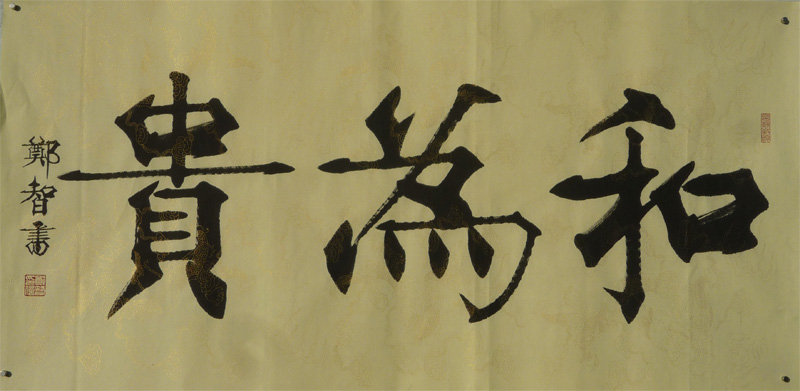 和為貴
鄭智書